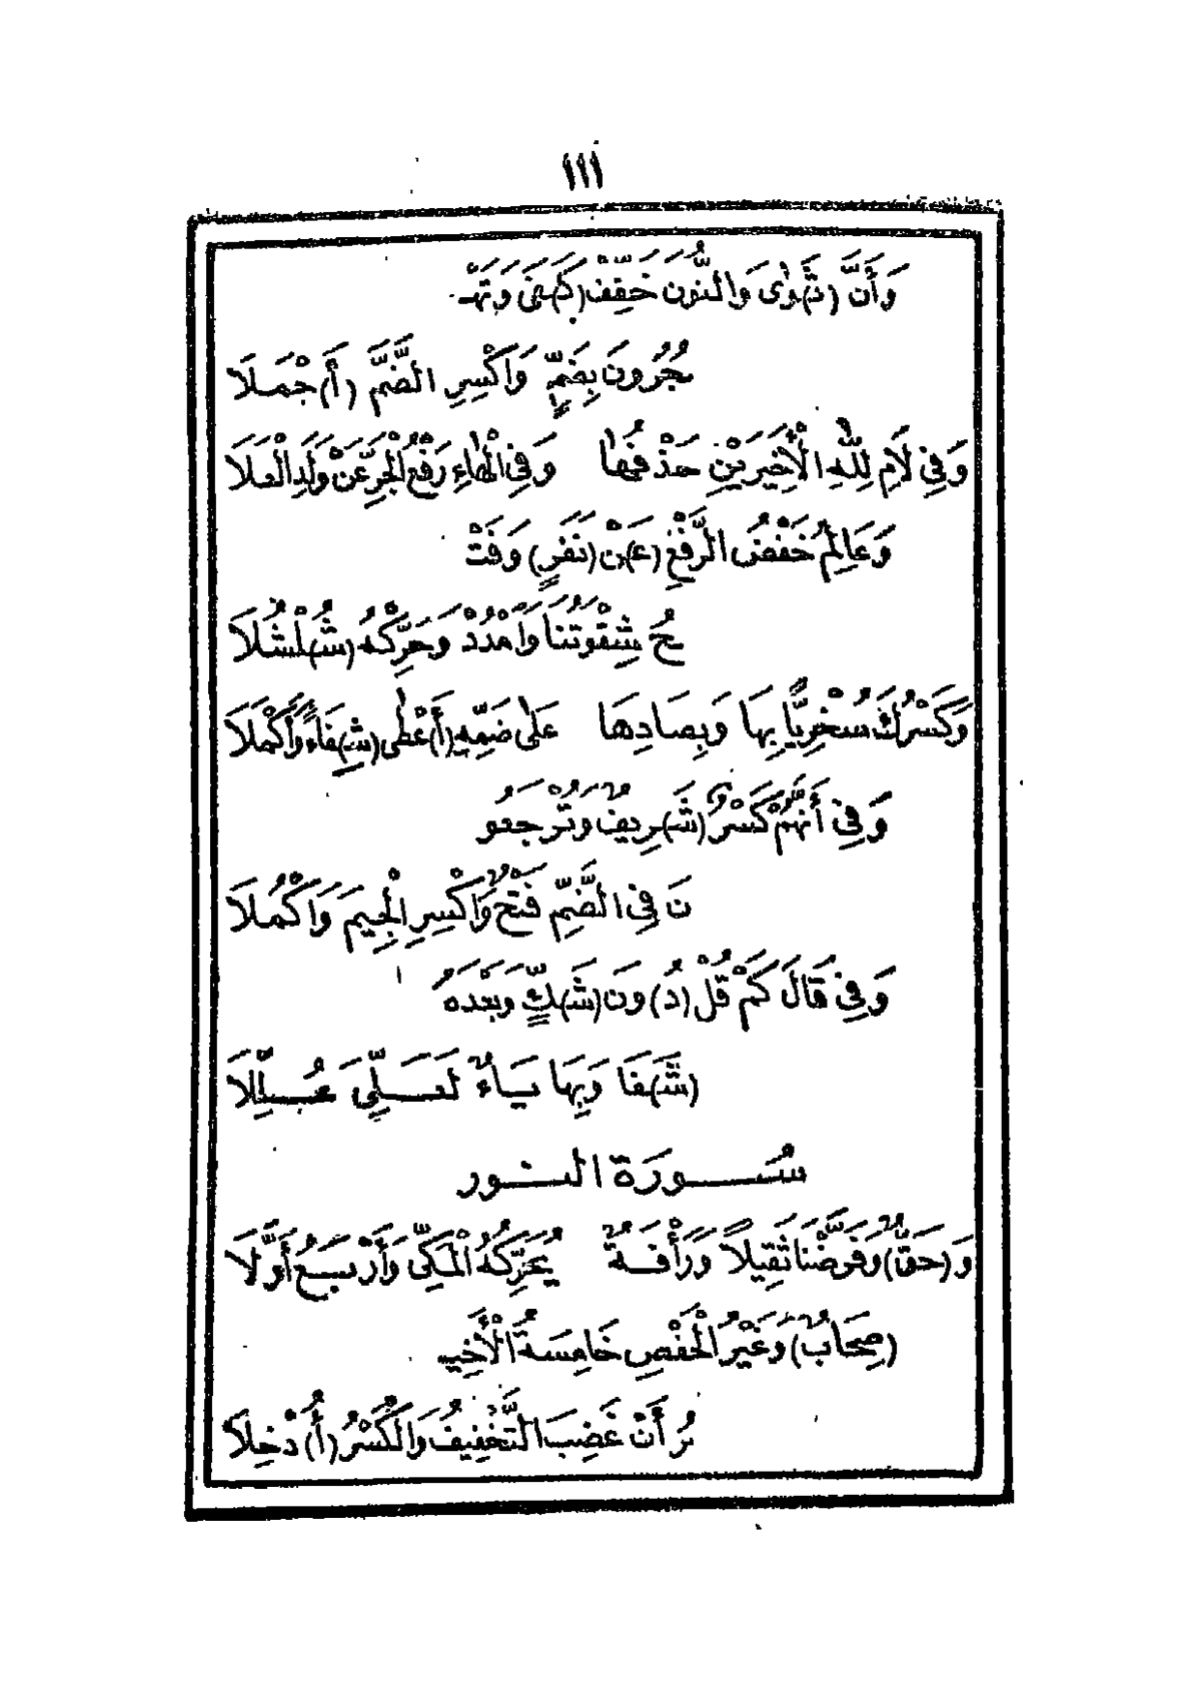 ١١١
وَأَنَّ (ثَ)وٰى وَالنُّونَ خَفِّفْ (كَ)فَى وَتَهْـ
ـجُرُونَ بِضَمٍّ وَاكْسِرِ الضَّمَّ (أَ)جْمَلَا
وَفِي لَامِ لِلّٰهِ الْأَخِيرَيْنِ حَذْفُهَا وَفِي الْهَاءِ رَفْعُ الْجَرِّ عَنْ وَلَدِ الْعَلَا
وَعَالِمُ خَفْضُ الرَّفْعِ (عَ)نْ (نَفَرٍ) وَفَتْـ
ـحُ شِقْوَتُنَا وَامْدُدْ وَحَرِّكْهُ (شُ)لْشُلَا
وَكَسْرُكَ سُخْرِيًّا بِهَا وَبِصَادِهَا عَلَى ضَمِّهِ (أَ)عْطٰى (شِ)فَاءً وَأَكْمَلَا
وَفِي أَنَّهُمْ كَسْرٌ (شَ)رِيفٌ وَتُرْجَعُو
نَ فِي الضَّمِّ فَتْحٌ وَاكْسِرِ الْجِيمَ وَاكْمُلَا
وَفِي قَالَ كَمْ قُلْ (دُ)ونَ (شَ)كٍّ وَبَعْدَهُ
(شَ)فَا وَبِهَا يَاءٌ لَعَلِّيَ عُلِّلَا
سُورَةُ النور
وَ(حَقٌّ) وَفَرَّضْنَا ثَقِيلًا وَرَأْفَةٌ يُحَرِّكُهُ الْمَكِّي وَأَرْبَعُ أَوَّلَا
(صِحَابٌ) وَغَيْرُ الْحَفْصِ خَامِسَةُ الْأَخِيـ
ـرُ أَنْ غَضِبَ التَّخْفِيفُ وَالْكَسْرُ (أُ)دْخِلَا